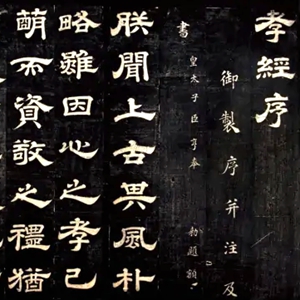 孝經序
御製序并注及
書 皇太子臣亨奉 勅題額
朕聞上古其風朴
略雖因心之孝已
萌而資敬之禮猶